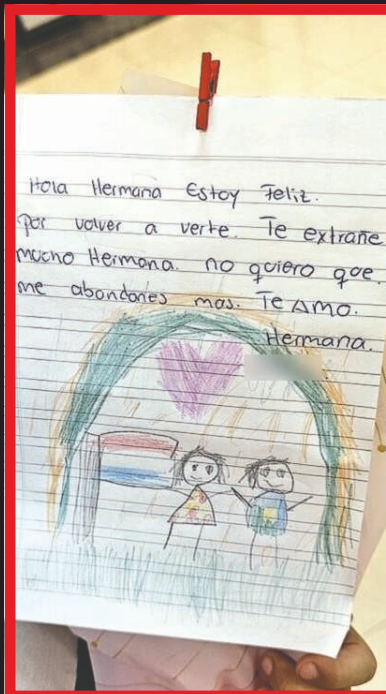 Hola Hermana Estoy Feliz.
Por volver a verte. Te extrañe
mucho Hermana. no quiero que
me abandones mas. Te Amo.
Hermana.